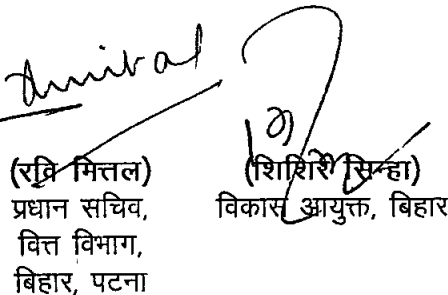 (रवि मित्तल)
प्रधान सचिव,
वित्त विभाग,
बिहार, पटना
(शिशिर सिन्हा)
विकास आयुक्त, बिहार